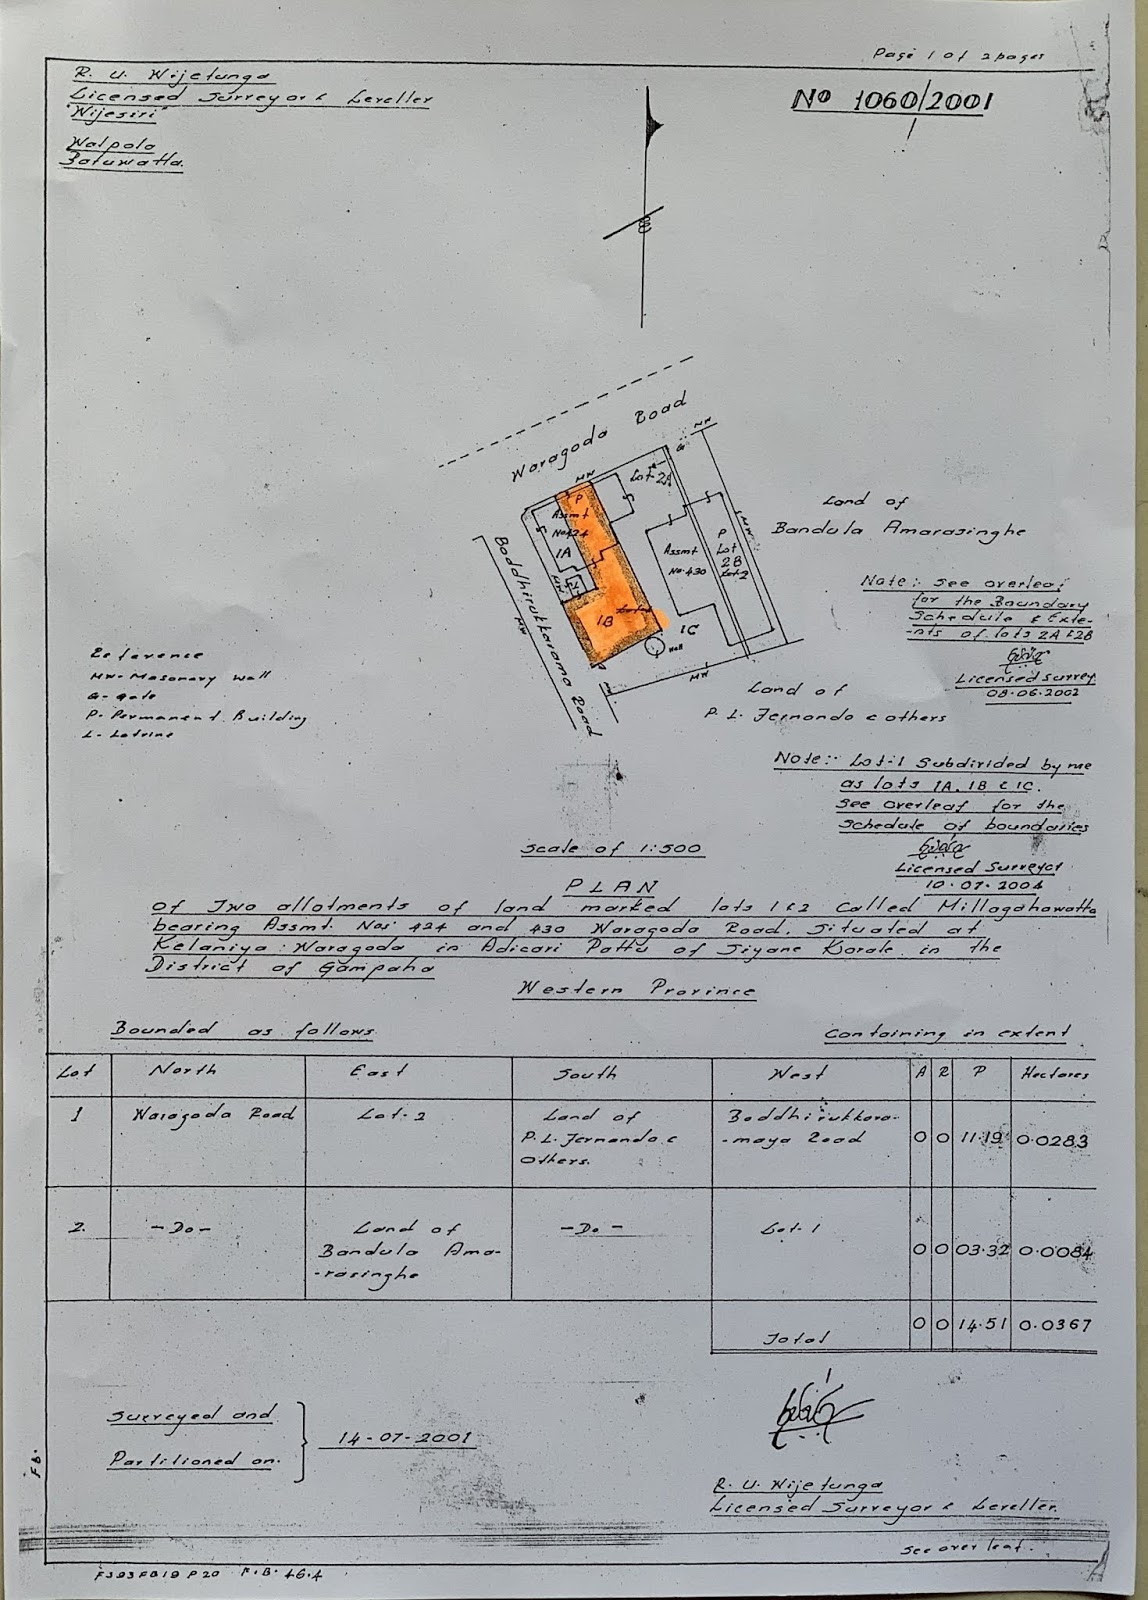 Page 1 of 2 pages
R. U. Wijetunga
Licensed Surveyor & Leveller
"Wijesiri"
Walpola
Batuwatta.
No 1060/2001
Waragoda Road
Boddhirukkarama Road
MW
MW
G
Lot 2A
P
Assmt
No 424
1A
MW
L
1B
1C
Well
Assmt
No. 430
P
Lot
2B
Lot 2
MW
MW
MW
MW
Land of
Bandula Amarasinghe
Note:- See overleaf
for the Boundary
Schedule & Exte-
nts of lots 2A & 2B
Licensed Survey.
08.06.2002
Reference
MW- Masonary Wall
G- gate
P- Permanent Building
L- Latrine
Land of
P. L. Fernando & others
Note:- Lot-1 Subdivided by me
as lots 1A, 1B & 1C.
See overleaf for the
Schedule of boundaries
Licensed Surveyor
Scale of 1:500
PLAN
of Two allotments of land marked lots 1&2 Called Millagahawatta
bearing Assmt. Nos: 424 and 430 Waragoda Road. Situated at
Kelaniya: Waragoda in Adicari Pattu of Siyane Korale in the
District of Gampaha
Western Province
Bounded as follows
Containing in extent
Lot North East South West A R P Hectares
1 Waragoda Road Lot-2 Land of P.L. Fernando & Others. Boddhirukkara-maya Road 0 0 11.19 0.0283
2. -Do- Land of Bandula Ama-rasinghe -Do- Lot-1 0 0 03.32 0.0084
Total 0 0 14.51 0.0367
Surveyed and
Partitioned on.
14-07-2001
R. U. Wijetunga
Licensed Surveyor & Leveller.
See over leaf.
F.B.